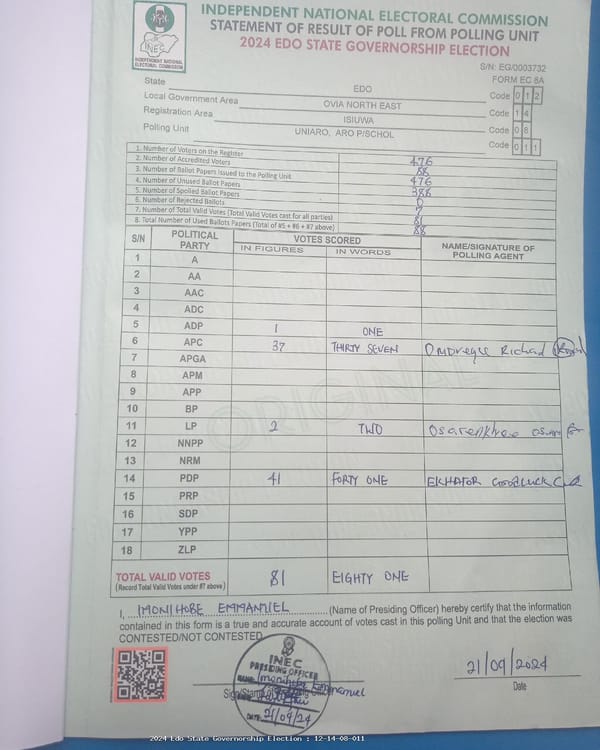 INEC
INDEPENDENT NATIONAL ELECTORAL COMMISSION
INDEPENDENT NATIONAL ELECTORAL COMMISSION
STATEMENT OF RESULT OF POLL FROM POLLING UNIT
2024 EDO STATE GOVERNORSHIP ELECTION
S/N: EG/0003732
FORM EC 8A
State EDO Code 0 1 2
Local Government Area OVIA NORTH EAST Code 1 4
Registration Area ISIUWA Code 0 8
Polling Unit UNIARO, ARO P/SCHOL Code 0 1 1
1. Number of Voters on the Register 476
2. Number of Accredited Voters 88
3. Number of Ballot Papers Issued to the Polling Unit 476
4. Number of Unused Ballot Papers 386
5. Number of Spoiled Ballot Papers 0
6. Number of Rejected Ballots
7. Number of Total Valid Votes (Total Valid Votes cast for all parties) 81
8. Total Number of Used Ballots Papers (Total of #5 + #6 + #7 above) 88
S/N POLITICAL PARTY VOTES SCORED NAME/SIGNATURE OF POLLING AGENT
IN FIGURES IN WORDS
1 A
2 AA
3 AAC
4 ADC
5 ADP 1 ONE
6 APC 37 THIRTY SEVEN Richard
7 APGA
8 APM
9 APP
10 BP
11 LP 2 TWO
12 NNPP
13 NRM
14 PDP 41 FORTY ONE EKHATOR GOODLUCK
15 PRP
16 SDP
17 YPP
18 ZLP
ORIGINAL
TOTAL VALID VOTES 81 EIGHTY ONE
(Record Total Valid Votes under #7 above)
I, IMONIHOBE EMMANUEL (Name of Presiding Officer) hereby certify that the information
contained in this form is a true and accurate account of votes cast in this polling Unit and that the election was
CONTESTED/NOT CONTESTED.
INEC
PRESIDING OFFICER
NAME: Emmanuel
DATE: 21/09/24
21/09/2024
Date
2024 Edo State Governorship Election : 12-14-08-011